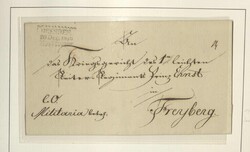 An
das Kriegsgericht des 1ten leichten
Reiter-Regiments Prinz Ernst
in
Freyberg
Militaria